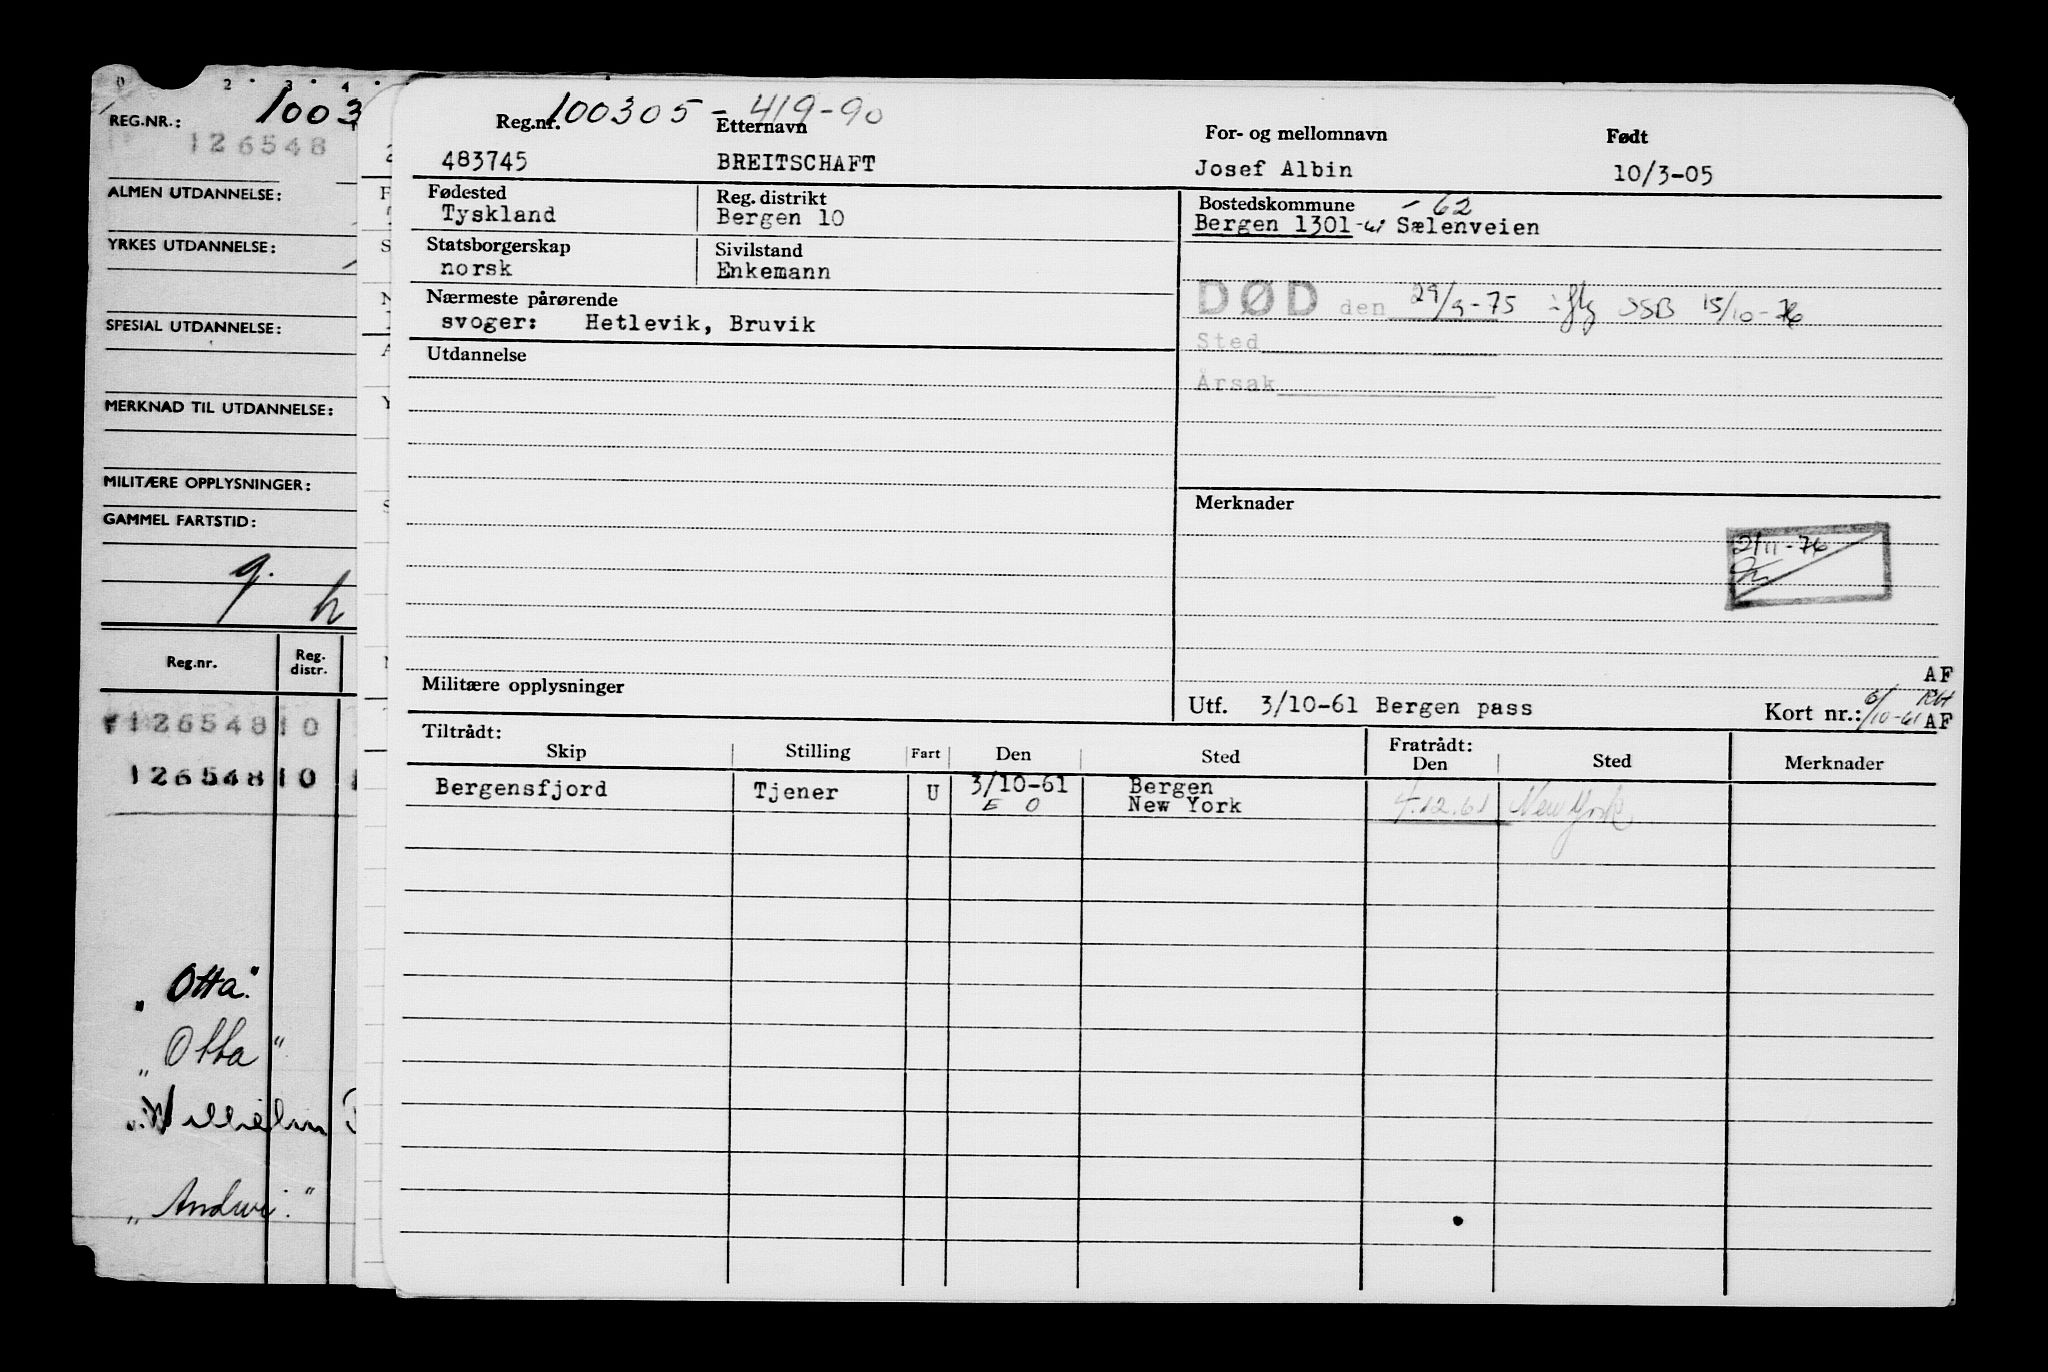 0 2 3 4
REG.NR.: 1003
126548
ALMEN UTDANNELSE:
YRKES UTDANNELSE:
SPESIAL UTDANNELSE:
MERKNAD TIL UTDANNELSE:
MILITÆRE OPPLYSNINGER:
GAMMEL FARTSTID:
Reg.nr. Reg. distr.
126548 10
126548 10
„Otta"
„Otta"
100305-419-90
Reg.nr. Etternavn For- og mellomnavn Født
483745 BREITSCHAFT Josef Albin 10/3-05
Fødested Reg. distrikt Bostedskommune -62
Tyskland Bergen 10 Bergen 1301-61 Sælenveien
Statsborgerskap Sivilstand
norsk Enkemann
Nærmeste pårørende DØD den 29/9-75 SSB 15/10-76
svoger: Hetlevik, Bruvik
Sted
Utdannelse
Årsak
Merknader
2/11-76
AF
Militære opplysninger
Utf. 3/10-61 Bergen pass Kort nr.: 6/10-61 AF
Tiltrådt: Fratrådt:
Skip Stilling Fart Den Sted Den Sted Merknader
Bergensfjord Tjener U 3/10-61 Bergen 4.12.61 New York
E O New York